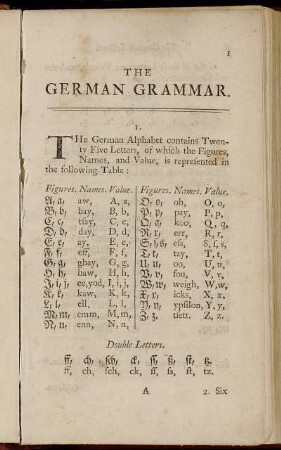 1
THE
GERMAN GRAMMAR.
I.
THE German Alphabet contains Twen-
ty Five Letters, of which the Figures,
Names, and Value, is represented in
the following Table:
Figures. Names. Value. Figures. Names. Value.
A, a, aw, A, a, O, o, oh, O, o,
B, b, bay, B, b, P, p, pay, P, p,
C, c, tsay, C, c, Q, q, koo, Q, q,
D, d, day, D, d, R, r, err, R, r,
E, e, ay, E, e, S, ſ, s, eſs, S, ſ, s,
F, f, eff, F, f, T, t, tay, T, t,
G, g, ghay, G, g, U, u, oo, U, u,
H, h, haw, H, h, V, v, fou, V, v,
I, i, j, ee, yod, I, i, j, W, w, weigh, W, w,
K, k, kaw, K, k, X, x, icks, X, x.
L, l, ell, L, l, Y, y, ypſilon, Y, y.
M, m, emm, M, m, Z, z, tſett. Z, z.
N, n, enn, N, n,
Double Letters.
ff, ch, ſch, ck, ſſ, ß, ſt, tz.
ff, ch, ſch, ck, ſſ, ſs, ſt, tz.
A 2. Six